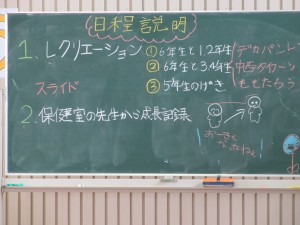 日程説明
1. レクリエーション ①6年生と1.2年生 デカパンレ
スライド ②6年生と3.4年生
③5年生のげき ももたろう
2. 保健室の先生から成長記録
おーきく
なったねぇ